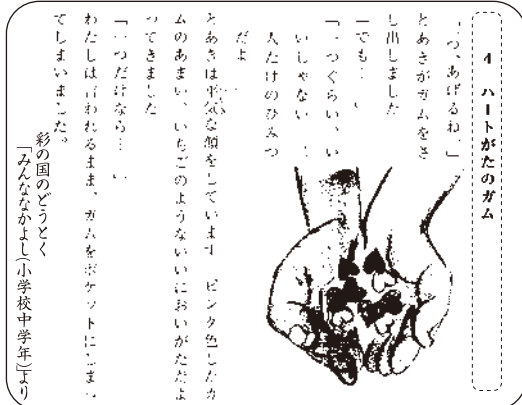 4 ハートがたのガム
「一つ、あげるね。」
とあきがガムをさ
し出しました
「でも…
「一つぐらい、い
いじゃない
人だけのひみつ
だよ
とあきは平気な顔をしています ピンク色したガ
ムのあまい、いちごのようないいにおいがただよ
ってきました
「一つだけなら…
わたしは言われるまま、ガムをポケットにしまっ
てしまいました。
彩の国のどうとく
「みんななかよし(小学校中学年)」より